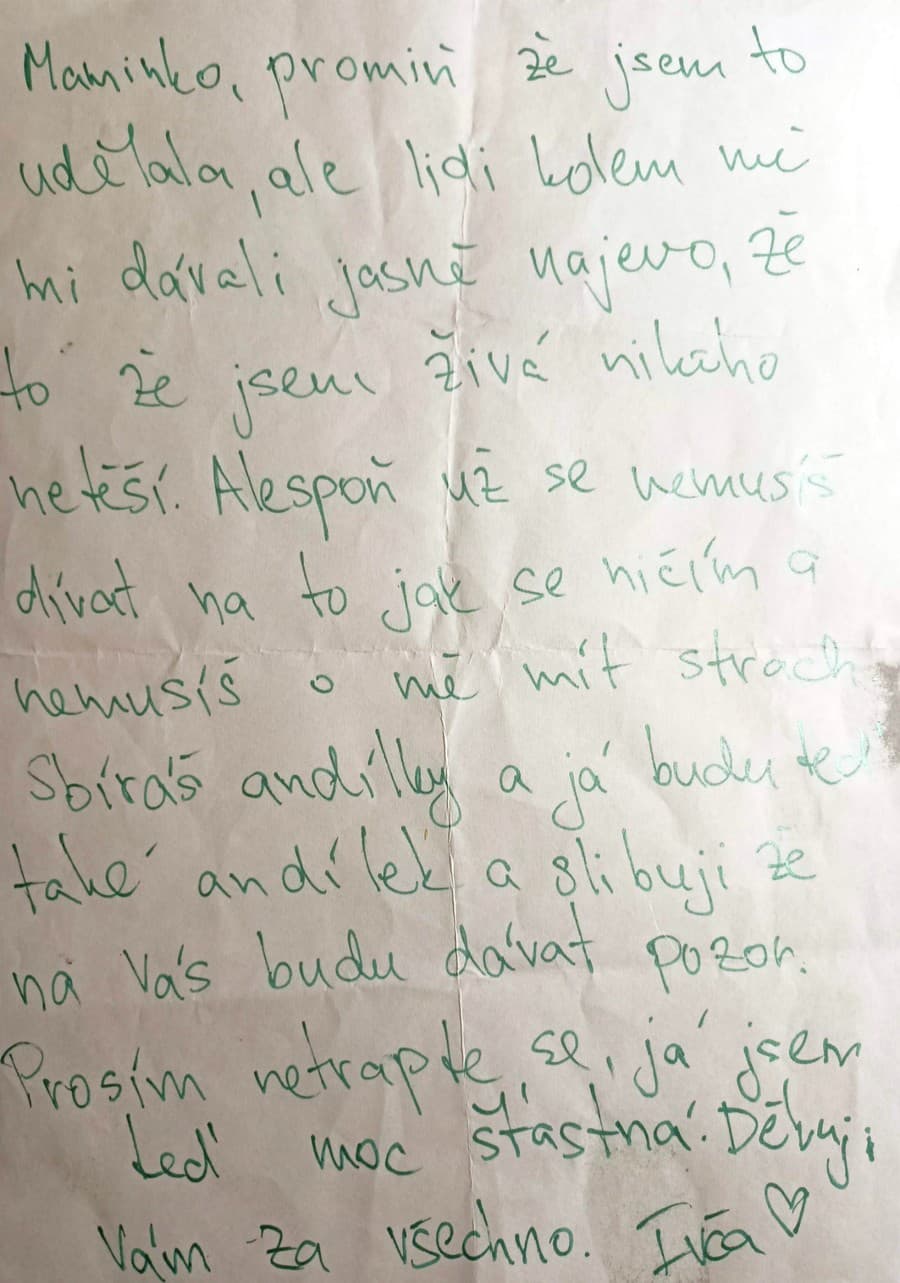 Maminko, promiň že jsem to
udělala, ale lidi kolem mě
mi dávali jasně najevo, že
to že jsem živá nikoho
netěší. Alespoň už se nemusíš
dívat na to jak se ničím a
nemusíš o mě mít strach
Sbíráš andílky a já budu teď
také andílek a slibuji že
na Vás budu dávat pozor.
Prosím netrapte se, já jsem
teď moc šťastná. Děkuji
Vám za všechno. Ivča ♡